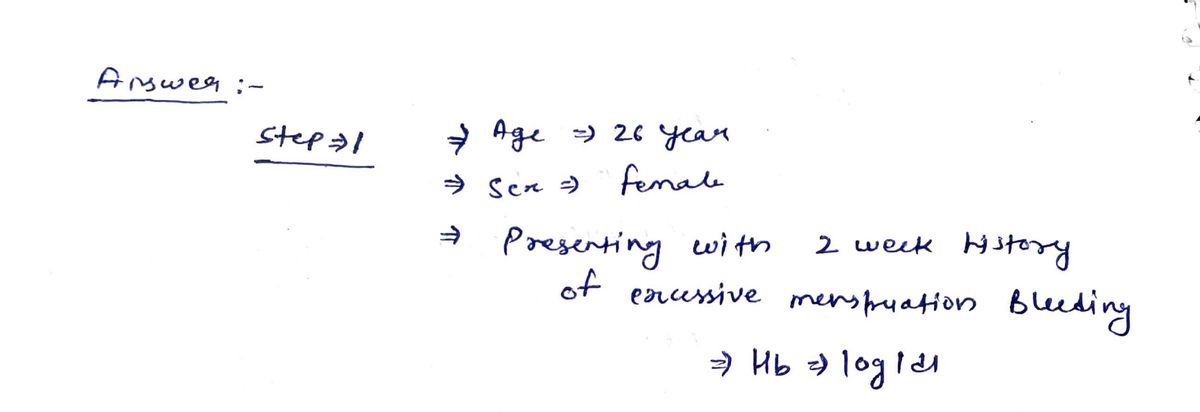 Answer :-
Step ⇒ 1 ⇒ Age ⇒ 26 year
⇒ Sex ⇒ female
⇒ Presenting with 2 week History
of excessive menstruation Bleeding
⇒ Hb ⇒ 10g/dl